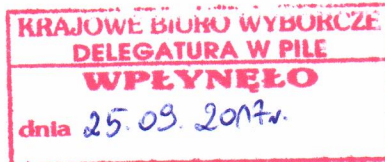 KRAJOWE BIURO WYBORCZE
DELEGATURA W PILE
WPŁYNĘŁO
dnia 25. 09. 2017r.